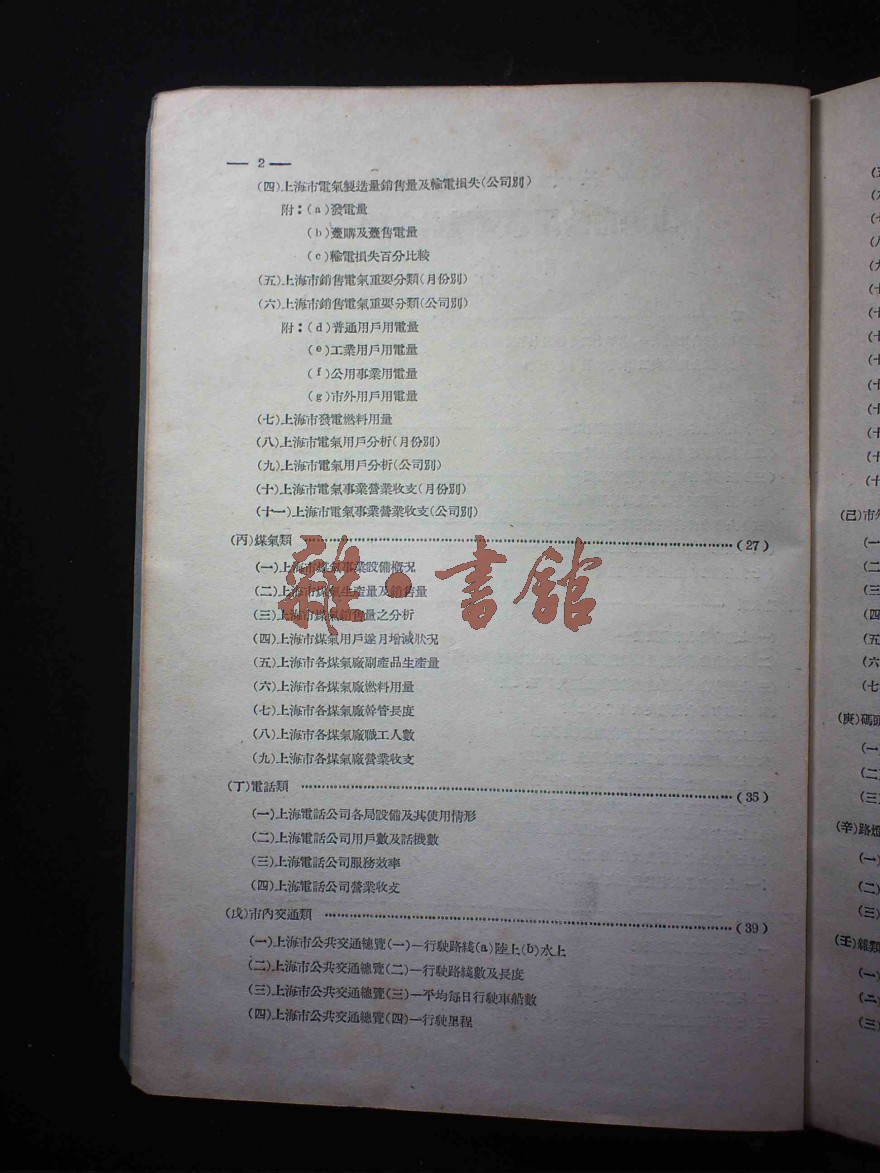 — 2 —
(四)上海市電氣製造量銷售量及輸電損失(公司別)
附:(a)發電量
(b)躉購及躉售電量
(c)輸電損失百分比較
(五)上海市銷售電氣重要分類(月份別)
(六)上海市銷售電氣重要分類(公司別)
附:(d)普通用戶用電量
(e)工業用戶用電量
(f)公用事業用電量
(g)市外用戶用電量
(七)上海市發電燃料用量
(八)上海市電氣用戶分析(月份別)
(九)上海市電氣用戶分析(公司別)
(十)上海市電氣事業營業收支(月份別)
(十一)上海市電氣事業營業收支(公司別)
(丙)煤氣類 ……………(27)
(一)上海市煤氣事業設備概况
(二)上海市煤氣生產量及銷售量
(三)上海市煤氣銷售量之分析
(四)上海市煤氣用戶逐月增減狀况
(五)上海市各煤氣廠副產品生產量
(六)上海市各煤氣廠燃料用量
(七)上海市各煤氣廠幹管長度
(八)上海市各煤氣廠職工人數
(九)上海市各煤氣廠營業收支
(丁)電話類 ……………(35)
(一)上海電話公司各局設備及其使用情形
(二)上海電話公司用戶數及話機數
(三)上海電話公司服務效率
(四)上海電話公司營業收支
(戊)市內交通類 ……………(39)
(一)上海市公共交通總覽(一)—行駛路綫(a)陸上(b)水上
(二)上海市公共交通總覽(二)—行駛路綫數及長度
(三)上海市公共交通總覽(三)—平均每日行駛車船數
(四)上海市公共交通總覽(四)—行駛里程
雜·書館
(己)市外
(一
(二
(三
(四
(五
(六
(七
(庚)碼頭
(一
(二
(三
(辛)路燈
(一)
(二)
(三)
(壬)雜類
(一)
(二
(三